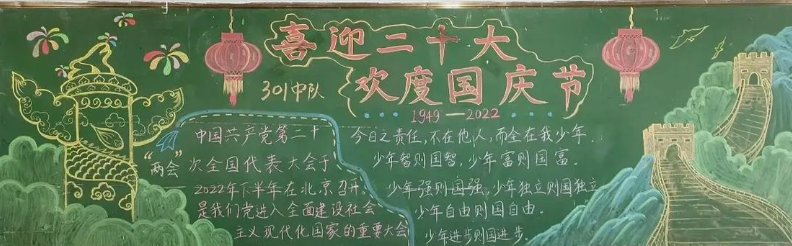 喜迎二十大
欢度国庆节
301中队
1949—2022
中国共产党第二十
"两会"
次全国代表大会于
2022年下半年在北京召开,
是我们党进入全面建设社会
主义现代化国家的重要大会
今日之责任,不在他人,而全在我少年.
少年智则国智,少年富则国富.
少年强则国强,少年独立则国独立
少年自由则国自由.
少年进步则国进步.